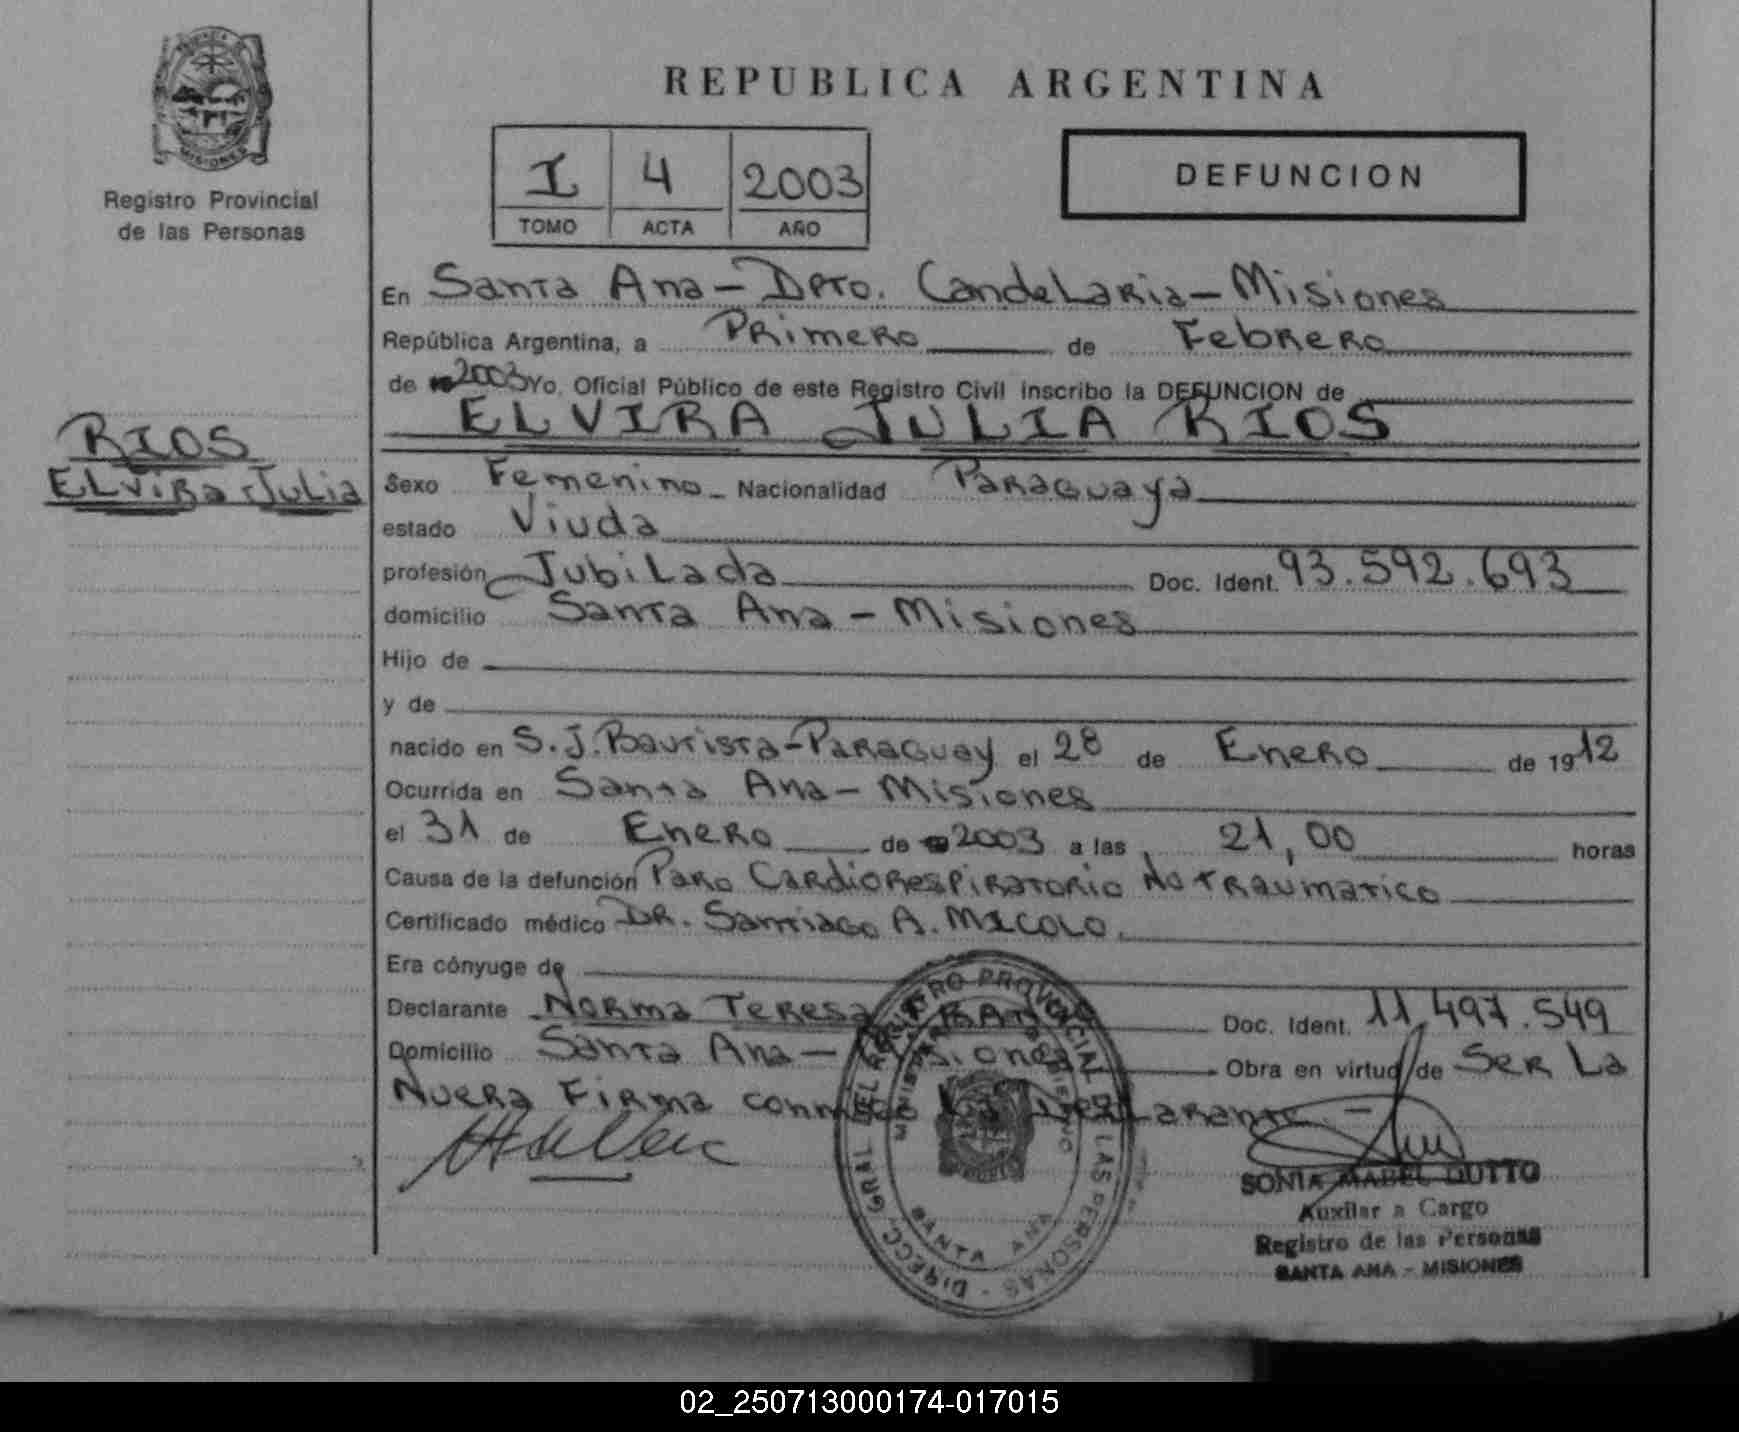 PROVINCIA DE
MISIONES
Registro Provincial
de las Personas
RIOS
ELVIRA JULIA
REPUBLICA ARGENTINA
I 4 2003
TOMO ACTA AÑO
DEFUNCION
En Santa Ana - Dpto. Candelaria - Misiones
República Argentina, a Primero de Febrero
de 2003 Yo, Oficial Público de este Registro Civil inscribo la DEFUNCION de
ELVIRA JULIA RIOS
Sexo Femenino Nacionalidad Paraguaya
estado Viuda
profesión Jubilada Doc. Ident. 93.592.693
domicilio Santa Ana - Misiones
Hijo de
y de
nacido en S.J. Bautista - Paraguay el 28 de Enero de 1912
Ocurrida en Santa Ana - Misiones
el 31 de Enero de 2003 a las 21,00 horas
Causa de la defunción Paro Cardiorespiratorio No traumatico
Certificado médico DR. Santiago A.
Era cónyuge de
Declarante Norma Teresa Doc. Ident. 11.497.549
Domicilio Santa Ana - Misiones Obra en virtud de Ser La
Nuera Firma conmigo La Declarante. -
DIRECC. GRAL. DEL REGISTRO PROVINCIAL DE LAS PERSONAS
MINISTERIO DE GOBIERNO
SANTA ANA
SONIA MABEL DUTTO
Auxiliar a Cargo
Registro de las Personas
SANTA ANA - MISIONES
02_250713000174-017015